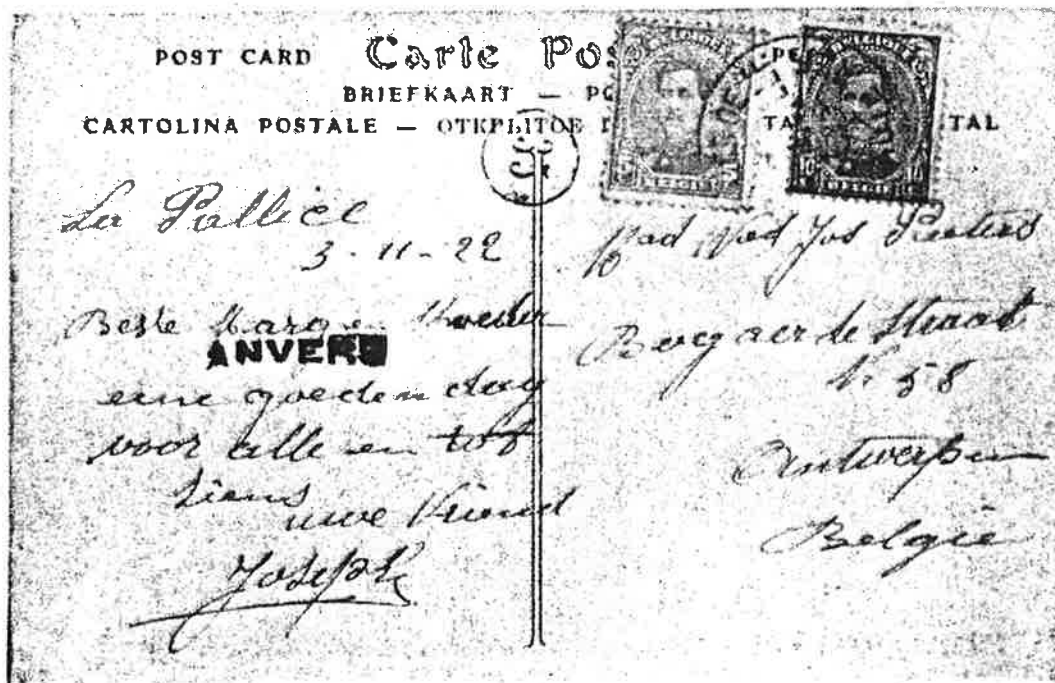 POST CARD Carte Pos
BRIEFKAART — PO
CARTOLINA POSTALE — ОТКРЫТОЕ TA TAL
La Pallice
3-11-22
Beste
ANVERS
eene goeden dag
voor alle en tot
ziens
uwe Vriend
Joseph
BELGIË
BELGIË
Jos Peeters
Bogaerde Straat
N. 58
Antwerpen
België